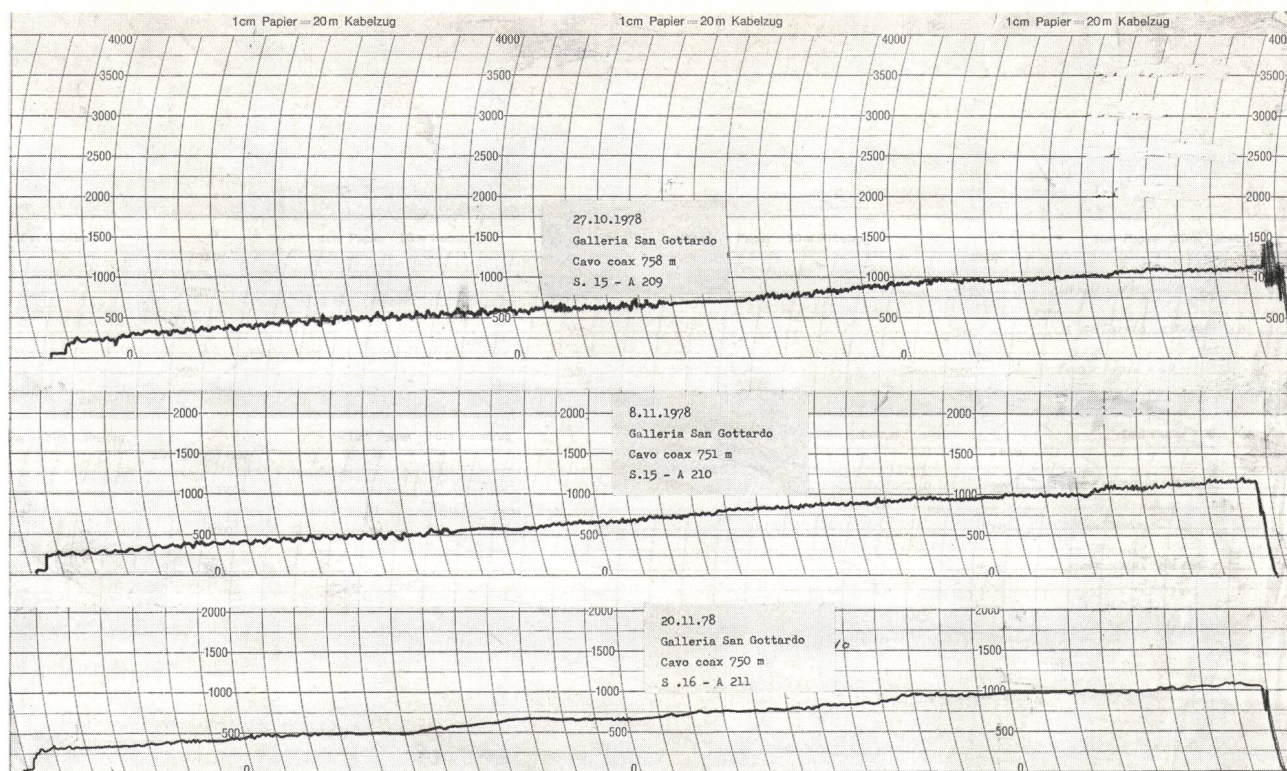 1cm Papier = 20m Kabelzug 1cm Papier = 20m Kabelzug 1cm Papier = 20m Kabelzug
4000 4000 4000 400
3500 3500 3500 3500
3000 3000 3000 3000
2500 2500 2500 2500
2000 2000 2000 2000
1500 1500 1500
1000 1000 1000
500 500 500 500
0 0 0
27.10.1978
Galleria San Gottardo
Cavo coax 758 m
S. 15 - A 209
2000 2000 2000
1500 1500 1500
1000 1000 1000
500 500 500
0 0 0
8.11.1978
Galleria San Gottardo
Cavo coax 751 m
S.15 - A 210
2000 2000
1500 1500
1000 1000 1000
500 500 500
0 0 0
20.11.78
Galleria San Gottardo
Cavo coax 750 m
S .16 - A 211